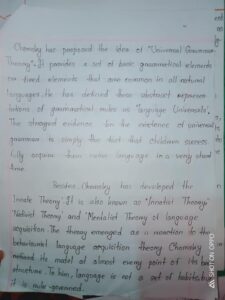 Chomsky has proposed the idea of "Universal Grammar
Theory". It provides a set of basic grammatical elements
or fixed elements that are common in all natural
languages. He has defined these abstract represen
tations of grammatical rules as "language Universals".
The strongest evidence for the existence of universal
grammar is simply the fact that children success
fully acquire their native language in a very short
time.
Besides, Chomsky has developed the
Innate Theory. It is also known as "Innatist Theory"
"Nativist Theory" and "Mentalist Theory of language
acquisition. The theory emerged as a reaction to the
behaviourist language acquisition theory. Chomsky
refined the model at almost every point of its
structure. To him, language is not a set of habits, but
it is rule-governed.
SHOT ON OPPO